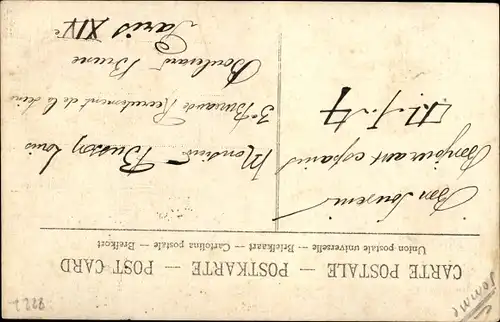 CARTE POSTALE — POSTKARTE — POST CARD
Union postale universelle — Briefkaart — Cartolina postale — Brefkort
Bon Souvenir
Bonjour aux copains
Monsieur Busson Louis
3e Bureau de Recrutement de la Seine
Boulevard Brune
Paris XIVe
Somme